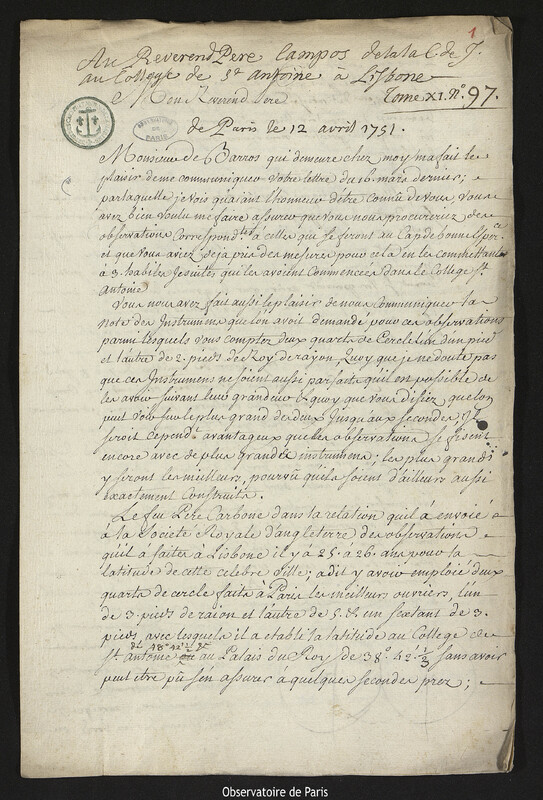 1
Au Reverend Pere Campos de la C. de J.
au College de St. antoine à Lisbone
Mon Reverend Pere
Tome XI. No. 97.
OBSERVATOIRE DE PARIS
de Paris le 12 avril 1751.
Monsieur de Barros qui demeure chez moy m'a fait le
plaisir de me communiquer votre lettre du 16. mars dernier;
par laquelle je vois qu'aiant l'honneur d'être connu de vous, vous
avez bien voulu me faire assurer que vous nous procureriez des
observations correspond.tes à celles qui se feront au Cap de bonne Esper.ce
et que vous avez deja pris des mesures pour cela en les commettant
à 3. habiles Jesuites qui les avoient commencées dans le College St.
Antoine
Vous nous avez fait aussi le plaisir de nous communiquer la
note des Instrumens que l'on avoit demandé pour ces observations
parmi lesquels vous comptez deux quarts de Cercle l'un d'un pied
et l'autre de 2. pieds de Roy de rayon. Quoy que je ne doute pas
que ces Instrumens ne soient aussi parfaits qu'il est possible de
les avoir suivant leur grandeur & quoy que vous disiez que l'on
peut voir sur le plus grand des deux jusqu'aux secondes Il
seroit cepend.t avantageux que les observations se fissent
encore avec de plus grands instrumens; les plus grands
y seront les meilleurs, pourvû qu'ils soient d'ailleurs aussi
exactement construits.
Le feu Pere Carbone dans la relation qu'il a envoié
à la Societé Royale d'angleterre des observations
qu'il a faites à Lisbone il y a 25. à 26. ans pour la
latitude de cette celebre Ville; a dit y avoir emploié deux
quarts de cercle faits à Paris les meilleurs ouvriers, l'un
de 3. pieds de raion et l'autre de 5. & un sextant de 3.
pieds, avec lesquels il a etabli la latitude au College de
St. antoine au Palais du Roy de 38°. 42'. 1/3 sans avoir
peut etre pû s'en assurer à quelques secondes prez;
Observatoire de Paris